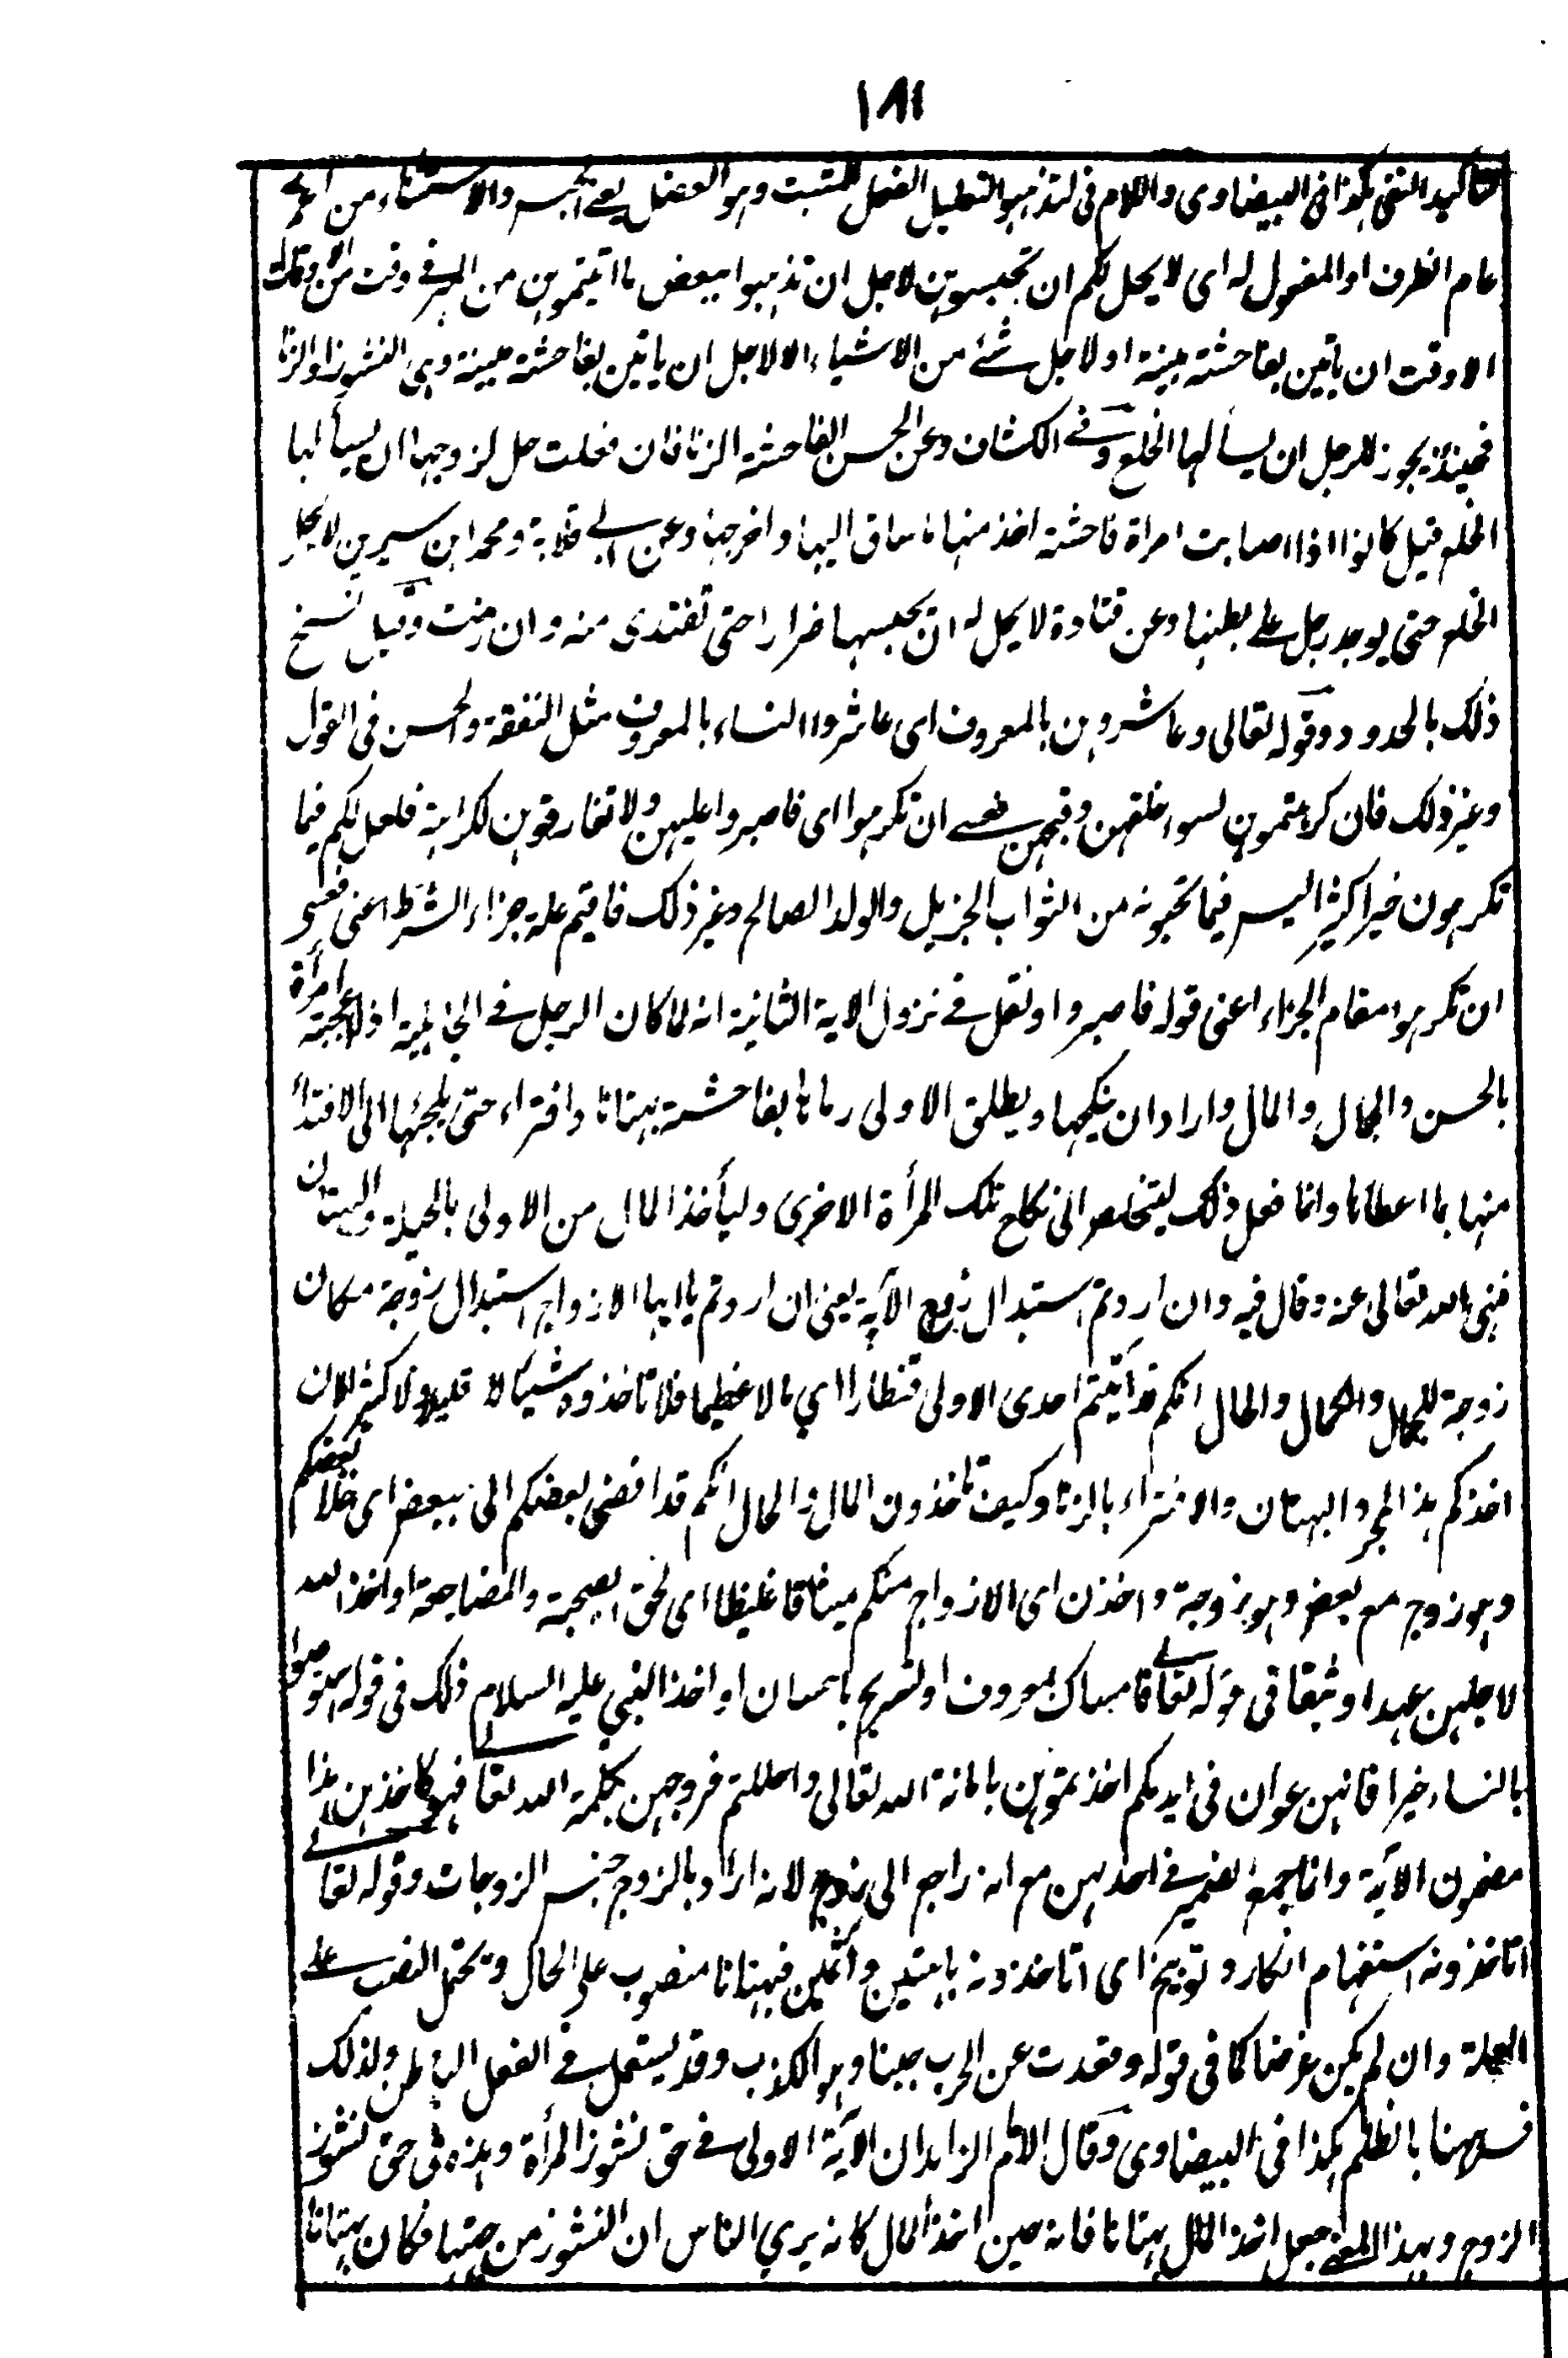 ١٨١
لتأكيد النفي هكذا في البيضاوي واللام في لتذهبوا لتعليل الفعل المثبت وهو العضل يعني الحبس والاستثناء من اعم
عام الظرف او المفعول له اى لا يحل لكم ان تحبسوهن لاجل ان تذهبوا ببعض ما اتيتموهن من المهر في وقت من الاوقات
الا وقت ان ياتين بفاحشة مبينة او لاجل شئ من الاشياء الا لاجل ان ياتين بفاحشة مبينة وهي النشوز او الزنا
فحينئذ يجوز للرجل ان يسألها الخلع وفي الكشاف وعن الحسن الفاحشة الزنا فان فعلت حل لزوجها ان يسألها
الخلع قيل كانوا اذا اصابت امرأة فاحشة اخذ منها ما ساق اليها واخرجها وعن ابي قلابة ومحمد ابن سيرين لا يحل
الخلع حتى يوجد رجل على بطنها وعن قتادة لا يحل له ان يحبسها ضرارا حتى تفتدى منه وان زنت وقيل نسخ
ذلك بالحدود وقوله تعالى وعاشروهن بالمعروف اى عاشروا النساء بالمعروف مثل النفقة والحسن فى القول
وغير ذلك فان كرهتموهن لسوء خلقهن وقبحهن فعسى ان تكرهوا اى فاصبروا عليهن ولا تفارقوهن لكراهة فلعل لكم فيما
تكرهون خيرا كثيرا ليس فيما تحبونه من الثواب الجزيل والولد الصالح وغير ذلك فاقيم علة جزاء الشرط اعنى فعسى
ان تكرهوا مقام الجزاء اعنى قوله فاصبروا ونقل في نزول الاية الثانية انه لما كان الرجل في الجاهلية اذا اعجبته امرأة
بالحسن والجمال والمال واراد ان ينكحها ويطلق الاولى رماها بفاحشة بهتانا وافتراء حتى يلجئها الى الافتداء
منها بما اعطاها وانما فعل ذلك ليتخلص الى نكاح تلك المرأة الاخرى وليأخذ المال من الاولى بالحيلة والبهتان
فنهى الله تعالى عنه وقال فيه وان اردتم استبدال زوج الآية يعني ان اردتم يا ايها الازواج استبدال زوجة مكان
زوجة للجمال والكمال والحال انكم قد آتيتم احدى الاولى قنطارا اي مالا عظيما فلا تاخذوه شيئا لا قليلا ولا كثيرا لان
اخذكم هذا لمجرد البهتان والافتراء بالزنا وكيف تاخذون المال والحال انكم قد افضى بعضكم الى بعض اى خلا بعضكم
وهو زوج مع بعض وهو زوجة واخذن اى الازواج منكم ميثاقا غليظا اى لحق الصحبة والمضاجعة او اخذ الله
لاجلهن عهدا وثيقا فى قوله تعالى فامساك بمعروف او تسريح باحسان او اخذ النبي عليه السلام ذلك فى قوله استوصوا
بالنساء خيرا فانهن عوان فى ايديكم اخذتموهن بامانة الله تعالى واستحللتم فروجهن بكلمة الله تعالى فهو كاخذهن هذا
مضمون الآية وانما جمع الضمير في احدٰهن مع انه راجع الى زوج لانه اراد بالزوج جنس الزوجات وقوله تعالى
اتاخذونه استفهام انكار وتوبيخ اى اتاخذونه باهتين وآثمين فبهتانا منصوب على الحال ويحتمل النصب على
العلة وان لم يكن غرضا كما فى قوله وقعدت عن الحرب جبنا وهو الكذب وقد يستعمل في الفعل الباطن ولذلك
فسر ههنا بالظلم هكذا في البيضاوى وقال الامام الزاهد ان الآية الاولى في حق نشوز المرأة وهذه في حق نشوز
الزوج وبهذا المعنى جعل اخذ المال بهتانا فانه حين اخذ المال كانه يري الناس ان النشوز من جهتها فكان بهتانا